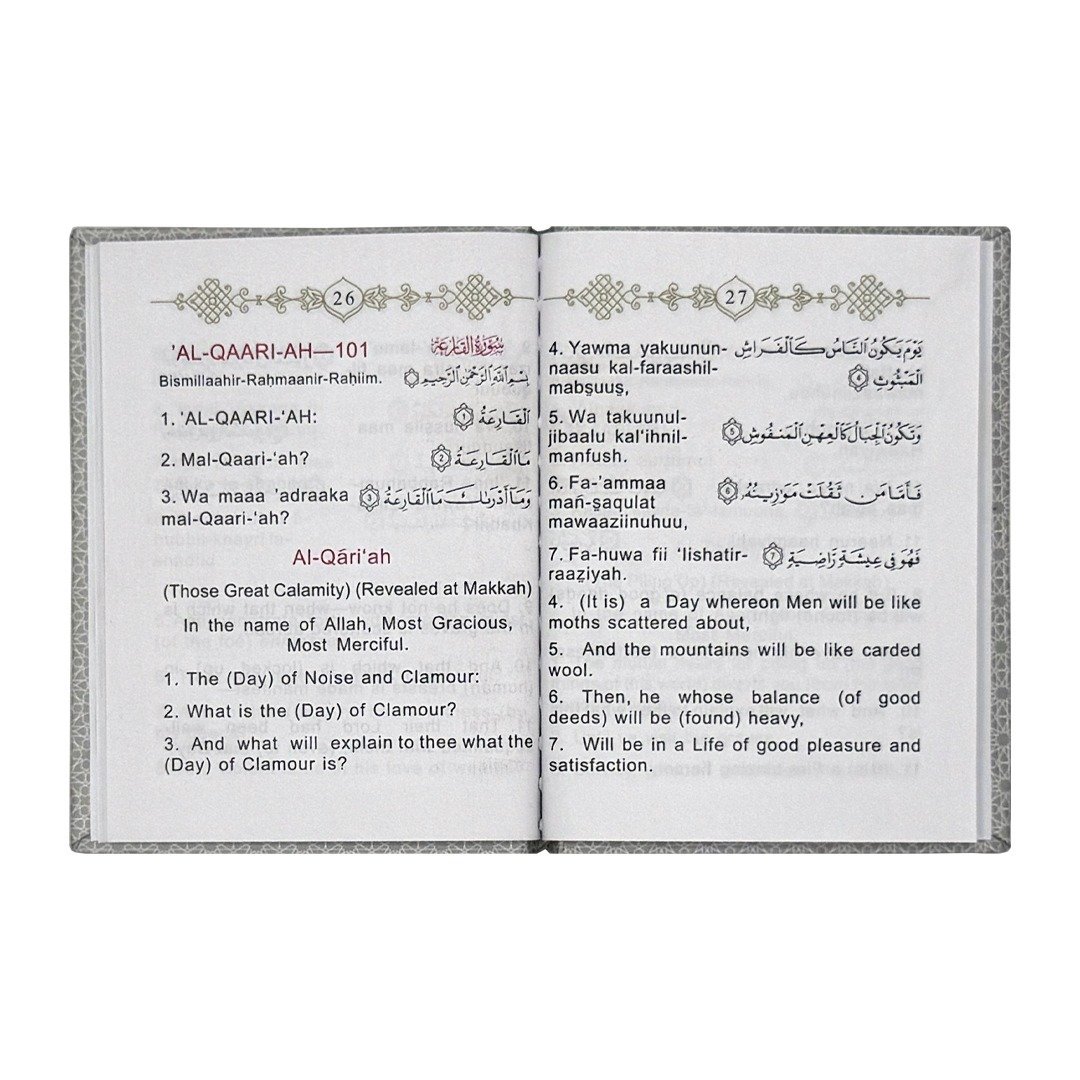 26
'AL-QAARI-AH—101 سُورَةُ القَارِعَة
Bismillaahir-Raḥmaanir-Raḥiim. بِسْمِ اللَّهِ الرَّحْمَٰنِ الرَّحِيمِ
1. 'AL-QAARI-‘AH: الْقَارِعَةُ ١
2. Mal-Qaari-‘ah? مَا الْقَارِعَةُ ٢
3. Wa maaa ’adraaka وَمَا أَدْرَاكَ مَا الْقَارِعَةُ ٣
mal-Qaari-‘ah?
Al-Qāri‘ah
(Those Great Calamity) (Revealed at Makkah)
In the name of Allah, Most Gracious,
Most Merciful.
1. The (Day) of Noise and Clamour:
2. What is the (Day) of Clamour?
3. And what will explain to thee what the
(Day) of Clamour is?
27
4. Yawma yakuunun- يَوْمَ يَكُونُ النَّاسُ كَالْفَرَاشِ
naasu kal-faraashil- الْمَبْثُوثِ ٤
mabṣuuṣ,
5. Wa takuunul-
jibaalu kal‘ihnil- وَتَكُونُ الْجِبَالُ كَالْعِهْنِ الْمَنفُوشِ ٥
manfush.
6. Fa-’ammaa
mañ-ṣaqulat فَأَمَّا مَن ثَقُلَتْ مَوَازِينُهُ ٦
mawaaziinuhuu,
7. Fa-huwa fii ‘Iishatir- فَهُوَ فِي عِيشَةٍ رَّاضِيَةٍ ٧
raaẓiyah.
4. (It is) a Day whereon Men will be like
moths scattered about,
5. And the mountains will be like carded
wool.
6. Then, he whose balance (of good
deeds) will be (found) heavy,
7. Will be in a Life of good pleasure and
satisfaction.